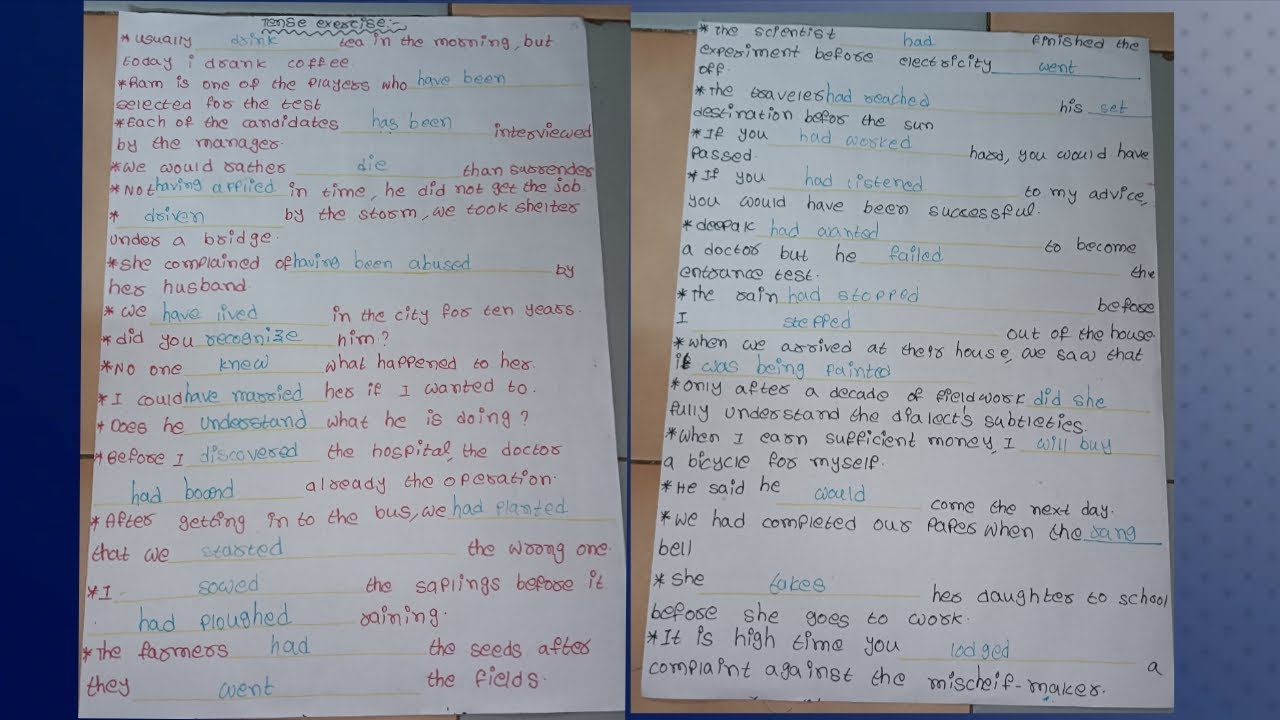 Tense exercise:-
* usually drink tea in the morning, but
today i drank coffee
* Ram is one of the players who have been
selected for the test
* Each of the candidates has been interviewed
by the manager.
* We would rather die than surrender
* Not having applied in time, he did not get the job
* driven by the storm, we took shelter
under a bridge.
* she complained of having been abused by
her husband
* We have lived in the city for ten years.
* did you recognize him?
* No one knew what happened to her.
* I could have married her if I wanted to.
* Does he understand what he is doing?
* Before I discovered the hospital, the doctor
had already the operation.
* After getting in to the bus, we had planted
that we started the wrong one.
* I sowed the saplings before it
had ploughed raining.
* The farmers had the seeds after
they went the fields.
* The scientist had finished the
experiment before electricity went
off.
* The traveler had reached his set
destination befor the sun
* If you had worked hard, you would have
passed.
* If you had listened to my advice,
you would have been successful.
* deepak had wanted to become
a doctor but he failed the
entrance test.
* The rain had stopped before
I stepped out of the house
* when we arrived at their house, we saw that
it was being painted
* only after a decade of fieldwork did she
fully understand the dialect's subtleties.
* When I earn sufficient money, I will buy
a bicycle for myself.
* He said he would come the next day.
* We had completed our paper when the rang
bell
* She takes her daughter to school
before she goes to work.
* It is high time you lodged a
complaint against the mischeif-maker.